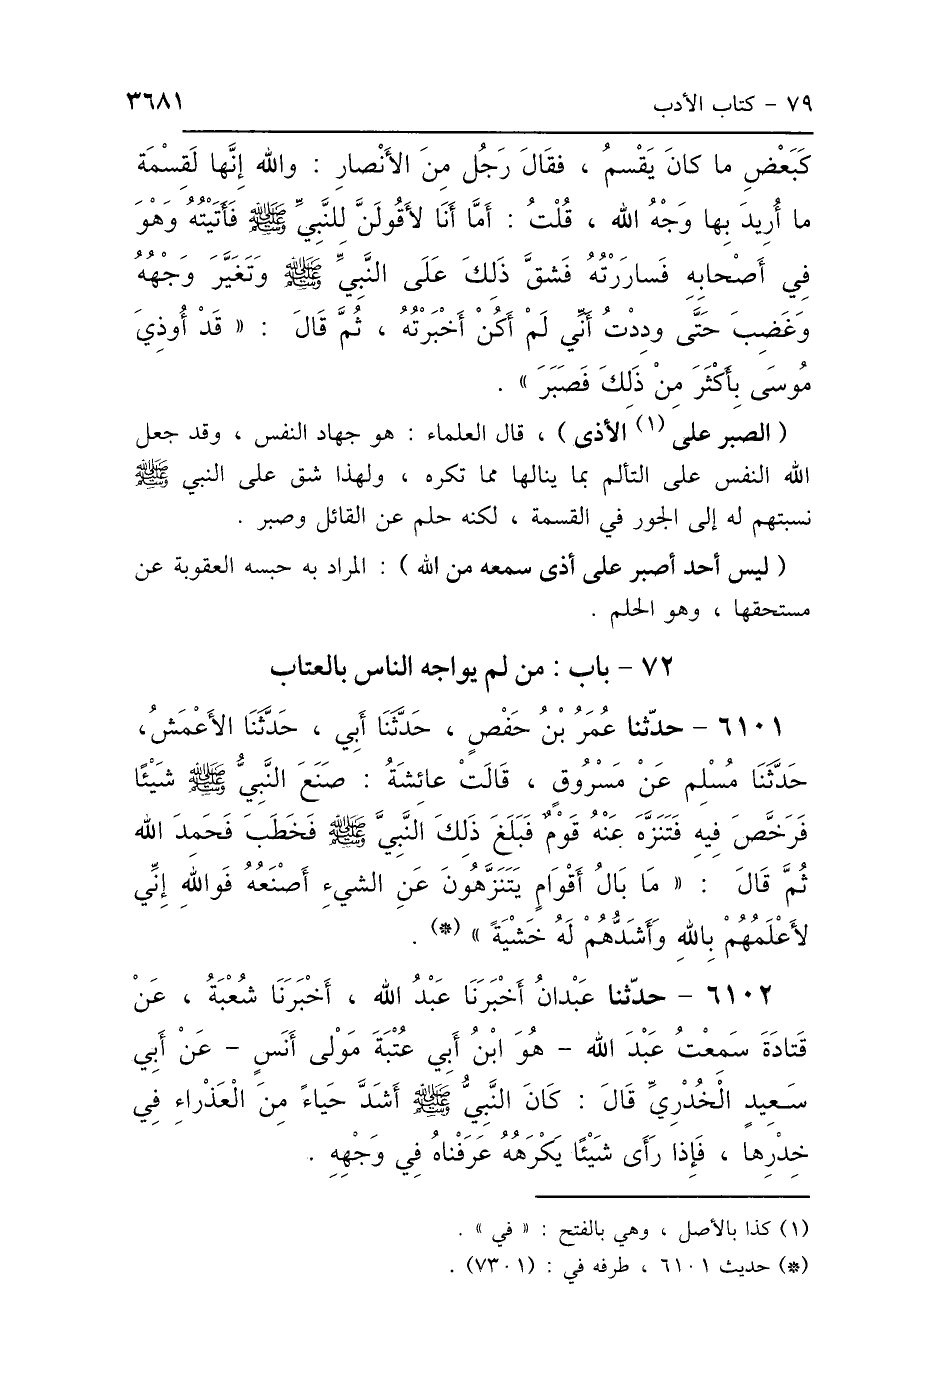 ٧٩ - كتاب الأدب ٣٦٨١
كَبَعْضِ ما كانَ يَقْسمُ ، فقَالَ رَجُل مِنَ الأَنْصارِ : والله إنَّها لَقِسْمَة
ما أُرِيدَ بِها وَجْهُ الله ، قُلْتُ : أمَّا أنَا لأَقُولَنَّ لِلنَّبِيِّ ﷺ فَأَتَيْتُهُ وَهْوَ
فِي أَصْحابِهِ فَسارَرْتُهُ فَشَقَّ ذَلكَ عَلَى النَّبِيِّ ﷺ وَتَغَيَّرَ وَجْهُهُ
وَغَضِبَ حَتَّى وددْتُ أَنِّي لَمْ أَكُنْ أَخْبَرْتُهُ ، ثُمَّ قَالَ : « قَدْ أُوذِيَ
مُوسَى بِأَكْثَرَ مِنْ ذَلِكَ فَصَبَرَ » .
( الصبر على (١) الأذى ) ، قال العلماء : هو جهاد النفس ، وقد جعل
الله النفس على التألم بما ينالها مما تكره ، ولهذا شق على النبي ﷺ
نسبتهم له إلى الجور في القسمة ، لكنه حلم عن القائل وصبر .
( ليس أحد أصبر على أذى سمعه من الله ) : المراد به حبسه العقوبة عن
مستحقها ، وهو الحلم .
٧٢ - باب : من لم يواجه الناس بالعتاب
٦١٠١ - حدّثنا عُمَرُ بْنُ حَفْصٍ ، حَدَّثَنَا أَبي ، حَدَّثَنَا الأَعْمَشُ،
حَدَّثَنَا مُسْلِم عَنْ مَسْرُوقٍ ، قَالَتْ عائشَةُ : صَنَعَ النَّبِيُّ ﷺ شَيْئًا
فَرَخَّصَ فِيهِ فَتَنَزَّهَ عَنْهُ قَوْمٌ فَبَلَغَ ذَلِكَ النَّبِيَّ ﷺ فَخَطَبَ فَحَمِدَ الله
ثُمَّ قَالَ : « مَا بَالُ أَقْوَامٍ يَتَنَزَّهُونَ عَنِ الشيءِ أَصْنَعُهُ فَواللهِ إنِّي
لأَعْلَمُهُمْ بِاللهِ وأَشَدُّهُمْ لَهُ خَشْيَةً » (*) .
٦١٠٢ - حدّثنا عَبْدانُ أَخْبَرَنَا عَبْدُ الله ، أَخْبَرَنَا شُعْبَةُ ، عَنْ
قَتَادَةَ سَمِعْتُ عَبْدَ الله - هُوَ ابْنُ أَبِي عُتْبَةَ مَوْلى أَنَسٍ - عَنْ أَبِي
سَعِيدٍ الْخُدْرِيِّ قَالَ : كَانَ النَّبِيُّ ﷺ أَشَدَّ حَياءً مِنَ الْعَذْراءِ فِي
خِدْرِها ، فَإذا رَأَى شَيْئًا يَكْرَهُهُ عَرَفْناهُ فِي وَجْهِهِ .
(١) كذا بالأصل ، وهي بالفتح : « في » .
(*) حديث ٦١٠١ ، طرفه في : (٧٣٠١) .